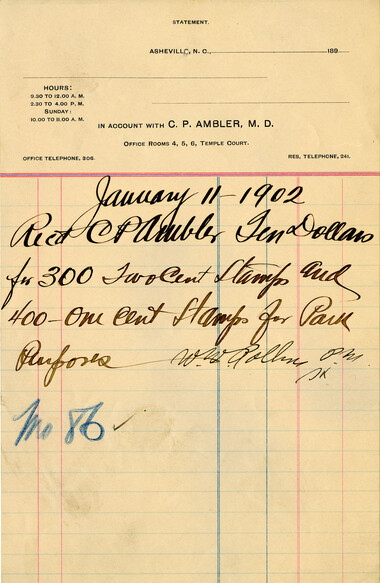 STATEMENT.
ASHEVILLE, N. C., 189
HOURS:
9.30 TO 12.00 A. M.
2.30 TO 4.00 P. M.
SUNDAY:
10.00 TO 11.00 A. M.
IN ACCOUNT WITH C. P. AMBLER, M. D.
OFFICE ROOMS 4, 5, 6, TEMPLE COURT.
OFFICE TELEPHONE, 306.
RES. TELEPHONE, 241.
January 11 - 1902
Recd C P Ambler Ten Dollars
for 300 Two Cent Stamps and
400 - One cent Stamps for Park
Purposes W. W. Rollins P. M.
No 86